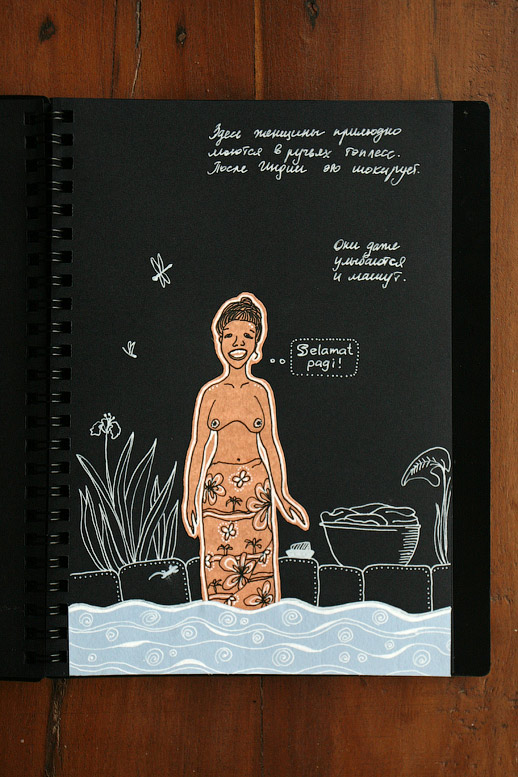 Здесь женщины прилюдно
моются в ручьях топлесс.
После Индии это шокирует.
Они даже
улыбаются
и машут.
Selamat
pagi!